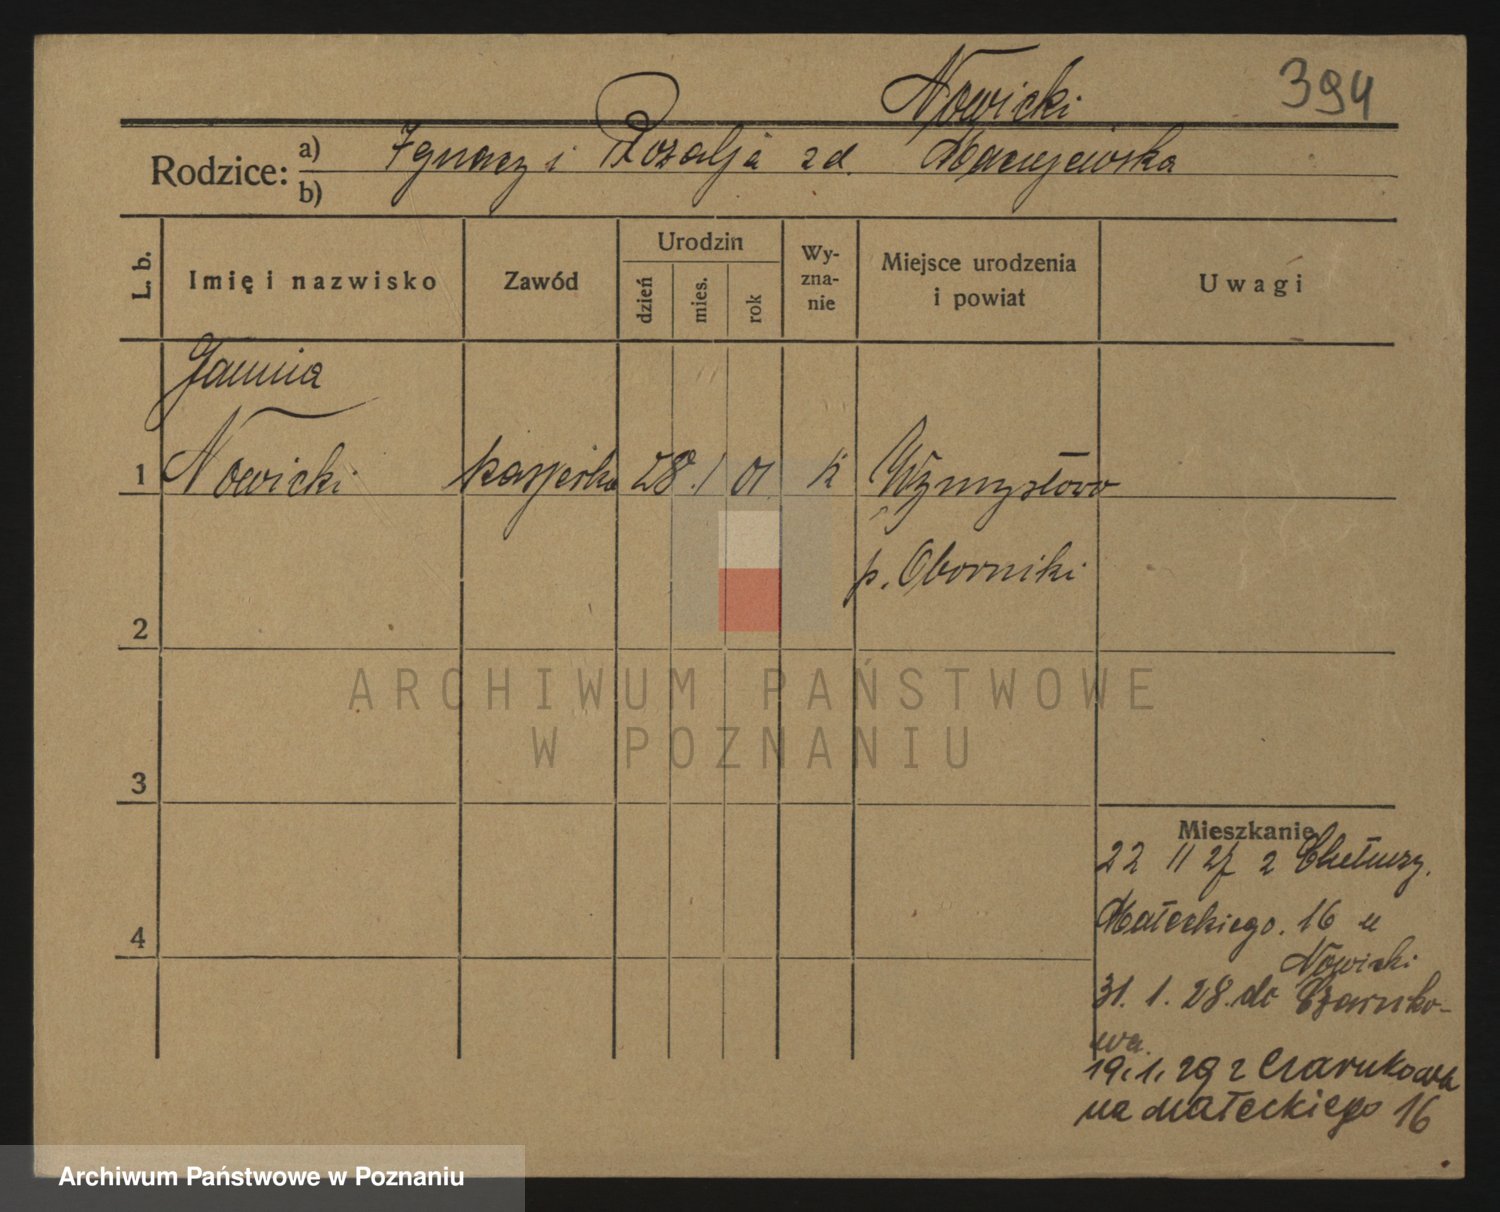 Nowicki
394
Rodzice: a) Ignacy i Rozalja zd. Maciejewska
b)
L. b.
Imię i nazwisko
Zawód
Urodzin
dzień
mies.
rok
Wy-
zna-
nie
Miejsce urodzenia
i powiat
Uwagi
Janina
1 Nowicki kasjerka 28. 1 01 k Wymysłowo
p. Oborniki
2
ARCHIWUM PAŃSTWOWE
W POZNANIU
3
4
Mieszkanie
22 11 27 z
Małeckiego. 16 u
Nowicki
31. 1. 28. do Czarnko-
wa.
19. 1. 29 z Czarnkowa
na Małeckiego 16
Archiwum Państwowe w Poznaniu